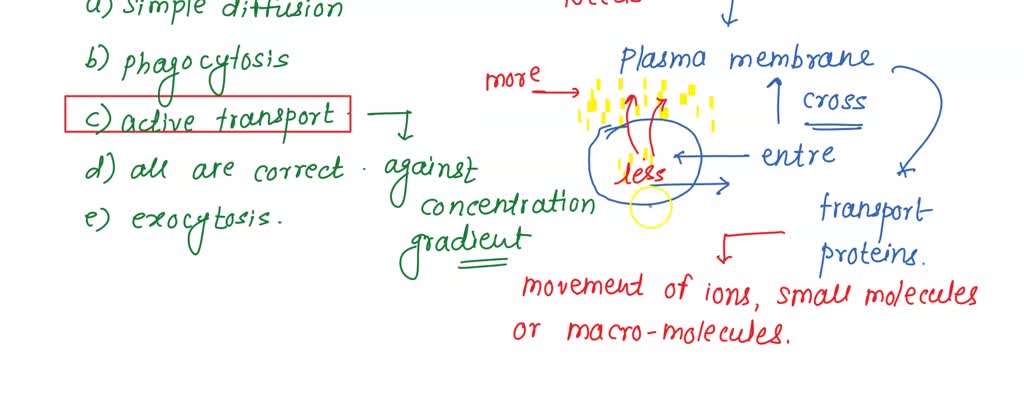 a) simple diffusion
b) phagocytosis
c) active transport
d) all are correct.
e) exocytosis.
against
concentration
gradient
Needs
Plasma membrane
more
cross
entre
less
transport
proteins.
movement of ions, small molecules
or macro-molecules.